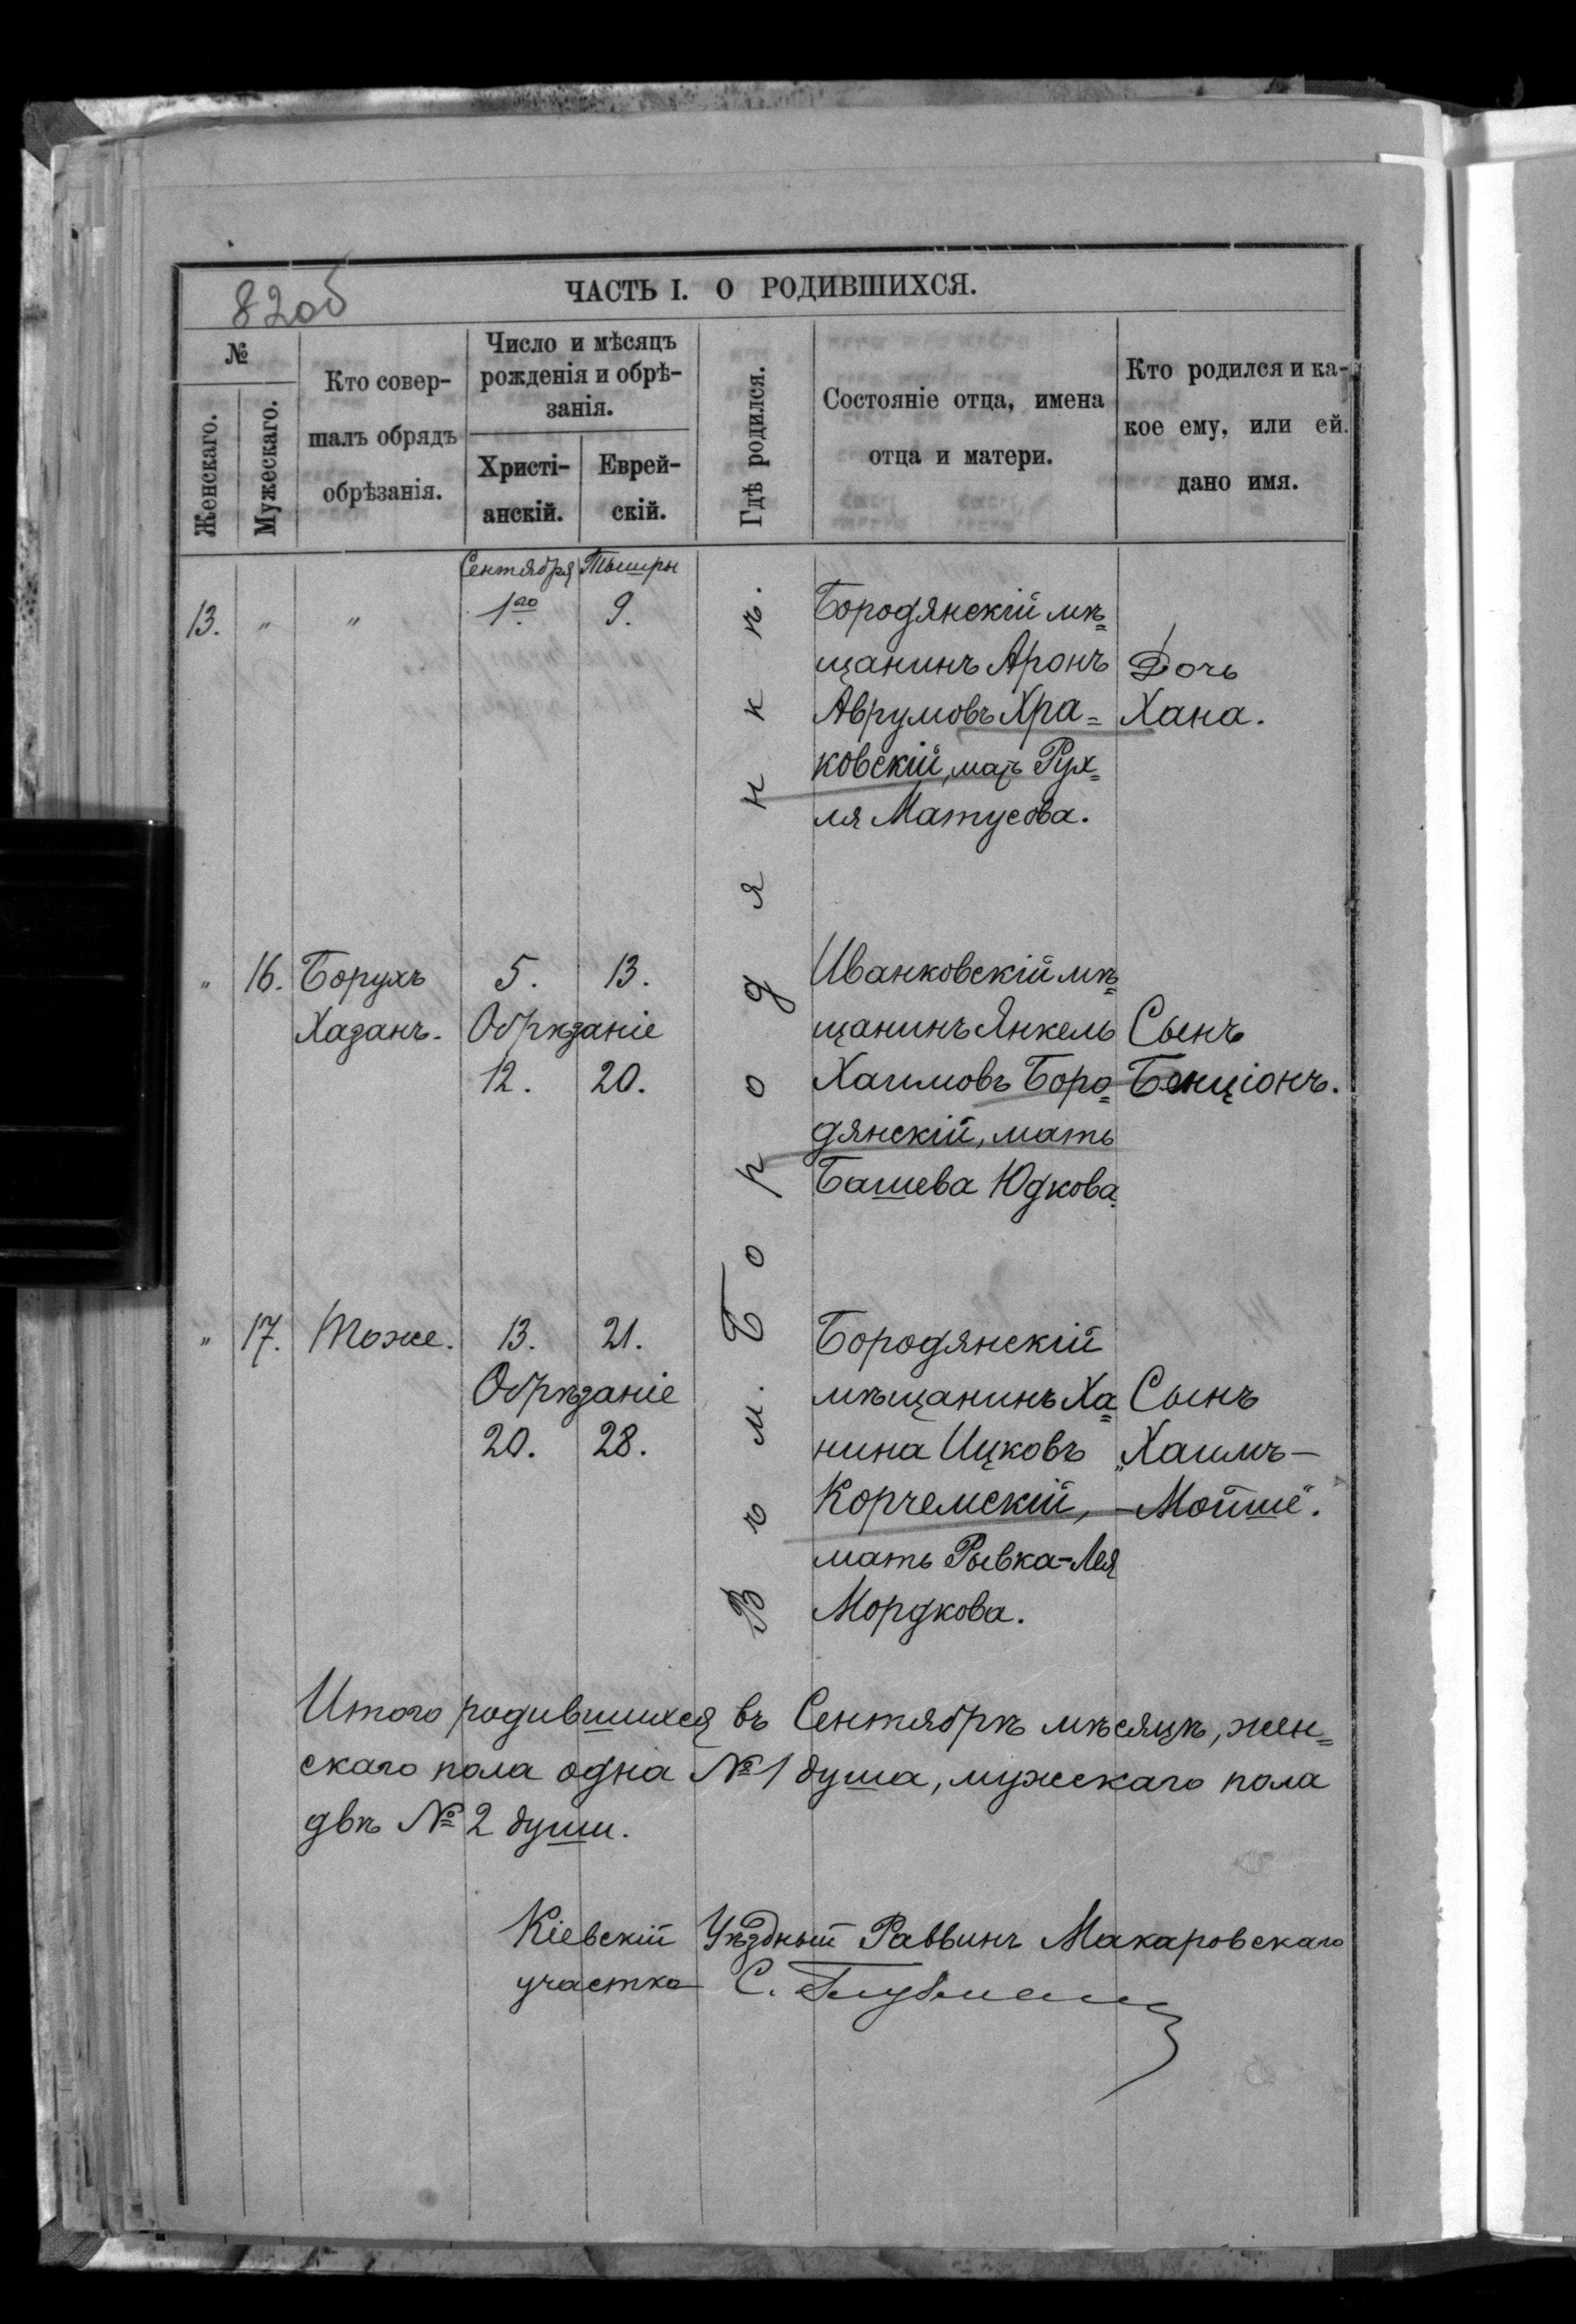 82об
ЧАСТЬ I. О РОДИВШИХСЯ.
№
Женскаго.
Мужескаго.
Кто совер-
шалъ обрядъ
обрѣзанія.
Число и мѣсяцъ
рожденія и обрѣ-
занія.
Христі-
анскій.
Еврей-
скій.
Гдѣ родился.
Состояніе отца, имена
отца и матери.
Кто родился и ка-
кое ему, или ей.
дано имя.
Въ м. Бородянкѣ.
Сентября Тышры
13. " " 1го 9.
Бородянскій мѣ=
щанинъ Аронъ
Аврумовъ Хра=
ковскій, мать Рух=
ля Матусова.
Дочь
Хана.
" 16. Борухъ 5. 13.
Хазанъ. Обрѣзаніе
12. 20.
Иванковскій мѣ=
щанинъ Янкель
Хаимовъ Боро=
дянскій, мать
Башева Юдкова.
Сынъ
Бенціонъ.
" 17. Тоже. 13. 21.
Обрѣзаніе
20. 28.
Бородянскій
мѣщанинъ Ха=
нина Ицковъ
Корчемскій,
мать Рывка-Лея
Мордкова.
Сынъ
"Хаимъ-
-Мойше".
Итого родившихся въ Сентябрѣ мѣсяцѣ, жен=
скаго пола одна № 1 душа, мужескаго пола
двѣ № 2 души.
Кіевскій Уѣздный Раввинъ Макаровскаго
участка С.